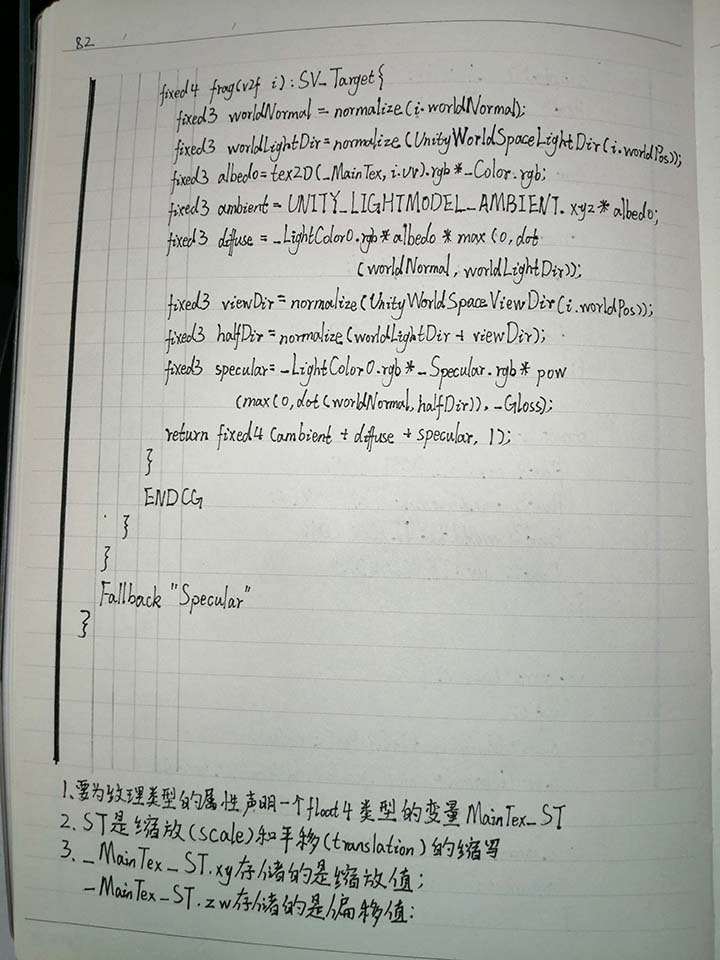 82
fixed4 frag(v2f i):SV_Target{
fixed3 worldNormal = normalize(i.worldNormal);
fixed3 worldLightDir=normalize(UnityWorldSpaceLightDir(i.worldPos));
fixed3 albedo=tex2D(_MainTex,i.uv).rgb*_Color.rgb;
fixed3 ambient=UNITY_LIGHTMODEL_AMBIENT.xyz*albedo;
fixed3 diffuse = _LightColor0.rgb*albedo * max(0,dot
(worldNormal, worldLightDir));
fixed3 viewDir=normalize(UnityWorldSpaceViewDir(i.worldPos));
fixed3 halfDir=normalize(worldLightDir + viewDir);
fixed3 specular=_LightColor0.rgb*_Specular.rgb* pow
(max(0,dot(worldNormal,halfDir)),_Gloss);
return fixed4(ambient + diffuse + specular, 1);
}
ENDCG
}
}
Fallback "Specular"
}
1、要为纹理类型的属性声明一个float4类型的变量MainTex_ST
2. ST是缩放(scale)和平移(translation)的缩写
3. _MainTex_ST.xy存储的是缩放值;
_MainTex_ST.zw存储的是偏移值: